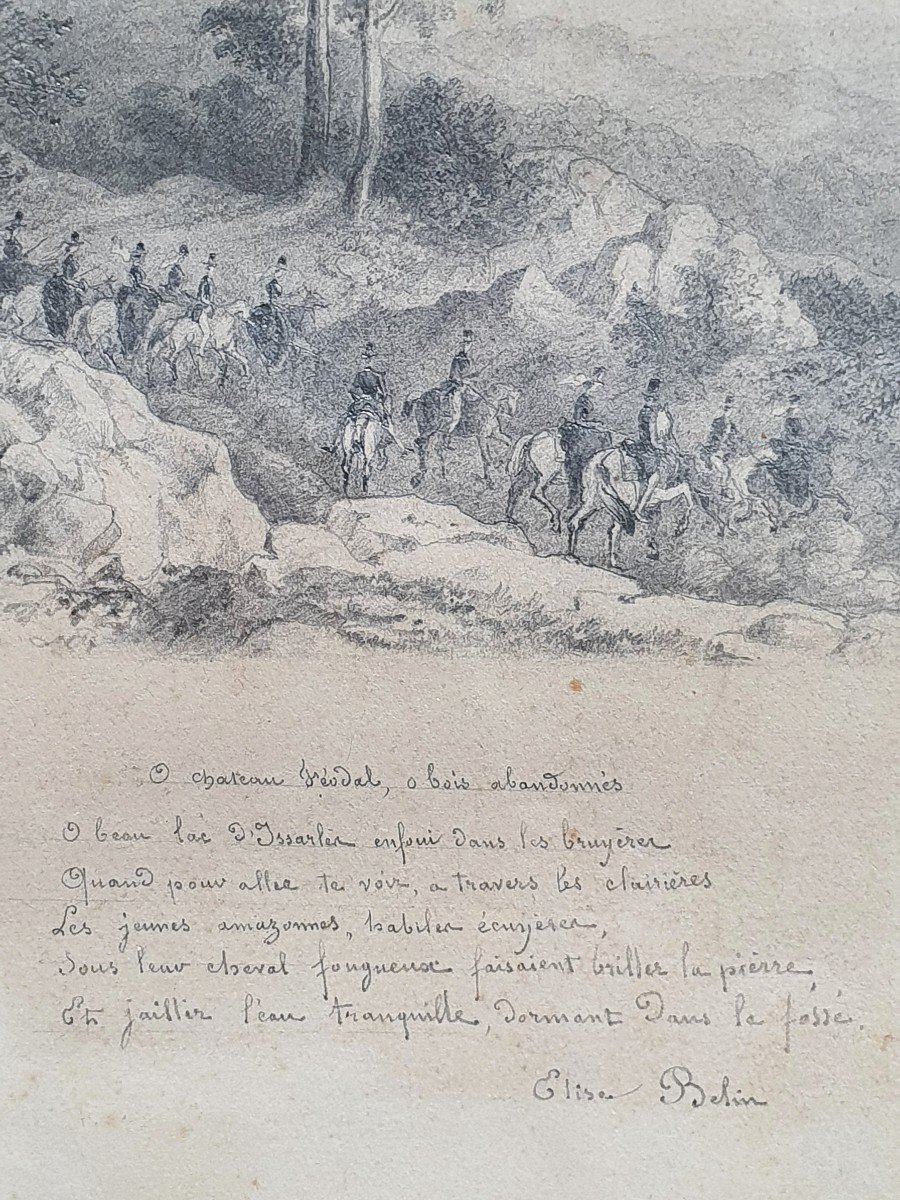 O chateau féodal, o bois abandonnés
O beau lac d'Issarlès enfoui dans les bruyères
Quand pour aller te voir, a travers les clairières
Les jeunes amazonnes, habiles écuyères,
Sous leur cheval fougueux faisaient briller la pièrre,
Et jaillir l'eau tranquille, dormant dans le fossé.
Elise Belin